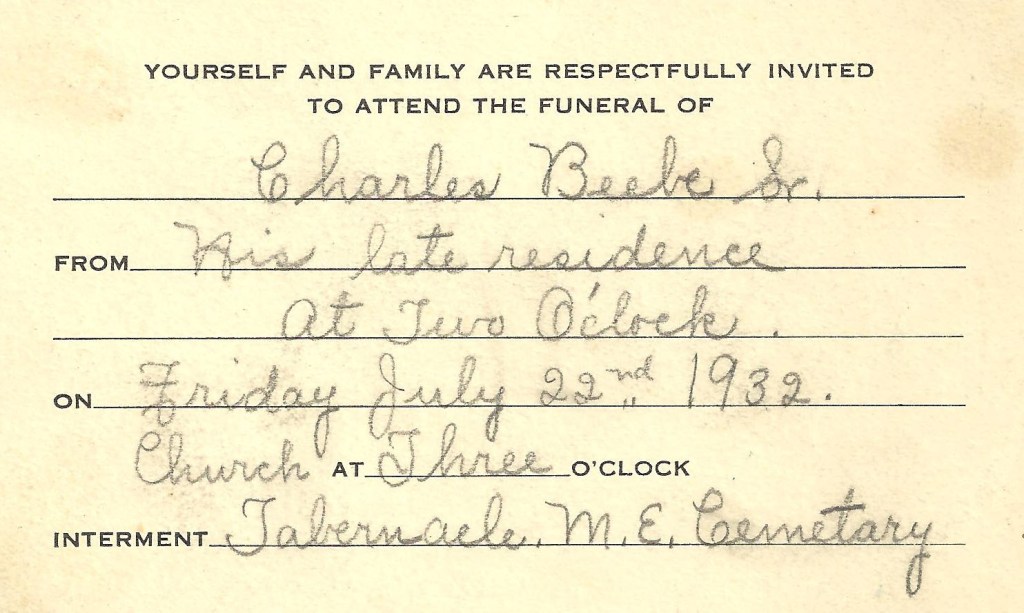 YOURSELF AND FAMILY ARE RESPECTFULLY INVITED
TO ATTEND THE FUNERAL OF
Charles Beebe Sr.
FROM His late residence
At Two O'clock.
ON Friday July 22nd 1932.
Church AT Three O'CLOCK
INTERMENT Tabernacle. M.E. Cemetary